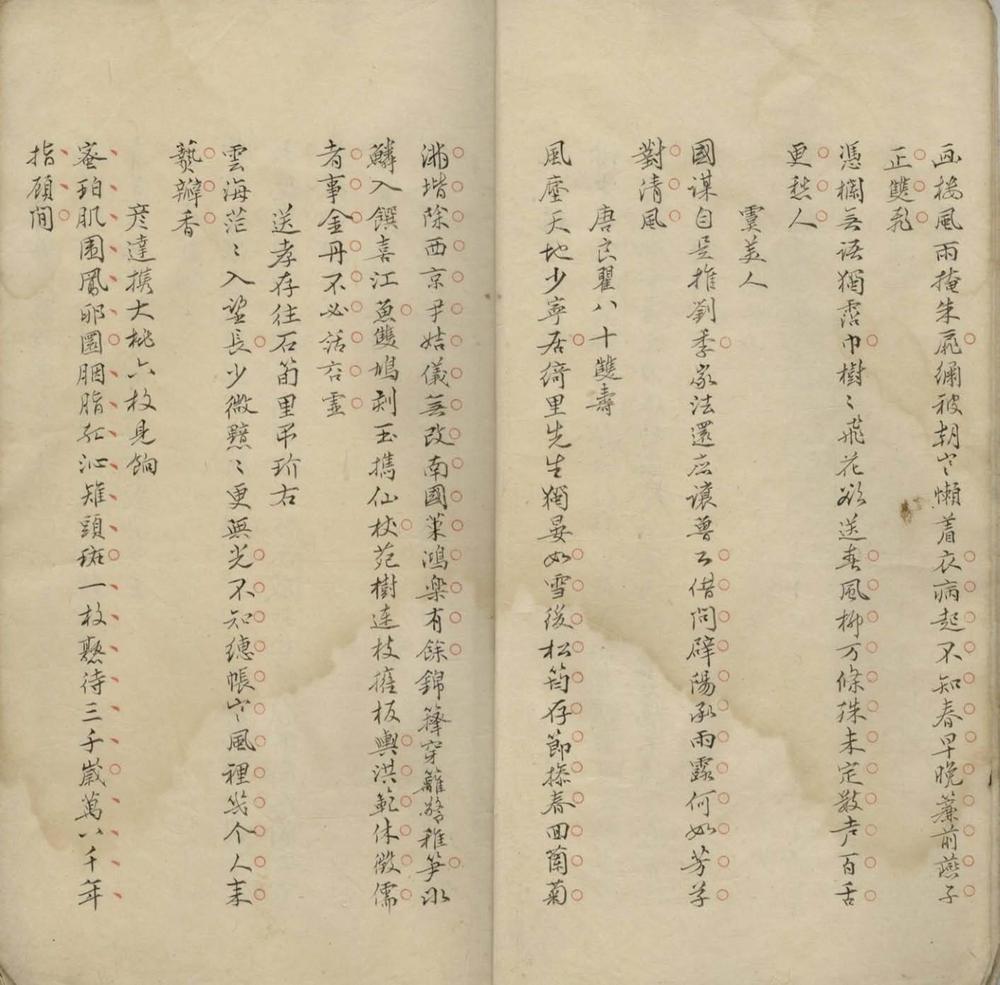 画楼風雨掩朱扉繡被朝寒懶着衣病起不知春早晚簾前燕子
正雙飛
憑欄無語獨霑巾樹〻飛花欲送春風柳万條殊未定數声百舌
更愁人
虞美人
國謀自是推劉季家法還應讓魯公借問辟陽承雨露何如芳草
對清風
唐良翟八十雙壽
風塵天地少寧居綺里先生獨晏如雪後松筠存節操春回蘭菊
滿堦除西京尹姞儀無改南國萊鴻樂有餘錦籜穿籬驚稚笋冰
鱗入饌喜江魚雙鳩刻玉攜仙杖苑樹連枝擁板輿洪範休徵儒
者事金丹不必話苓靈
送孝存往石荀里吊玠右
雲海茫〻入望長少微黯〻更無光不知繐帳寒風裡幾个人来
爇瓣香
彦達携大桃六枚見餉
蜜珀肌圍鳳卵圜胭脂紅沁雉頭斑一枚懸待三千歲萬八千年
指顧間